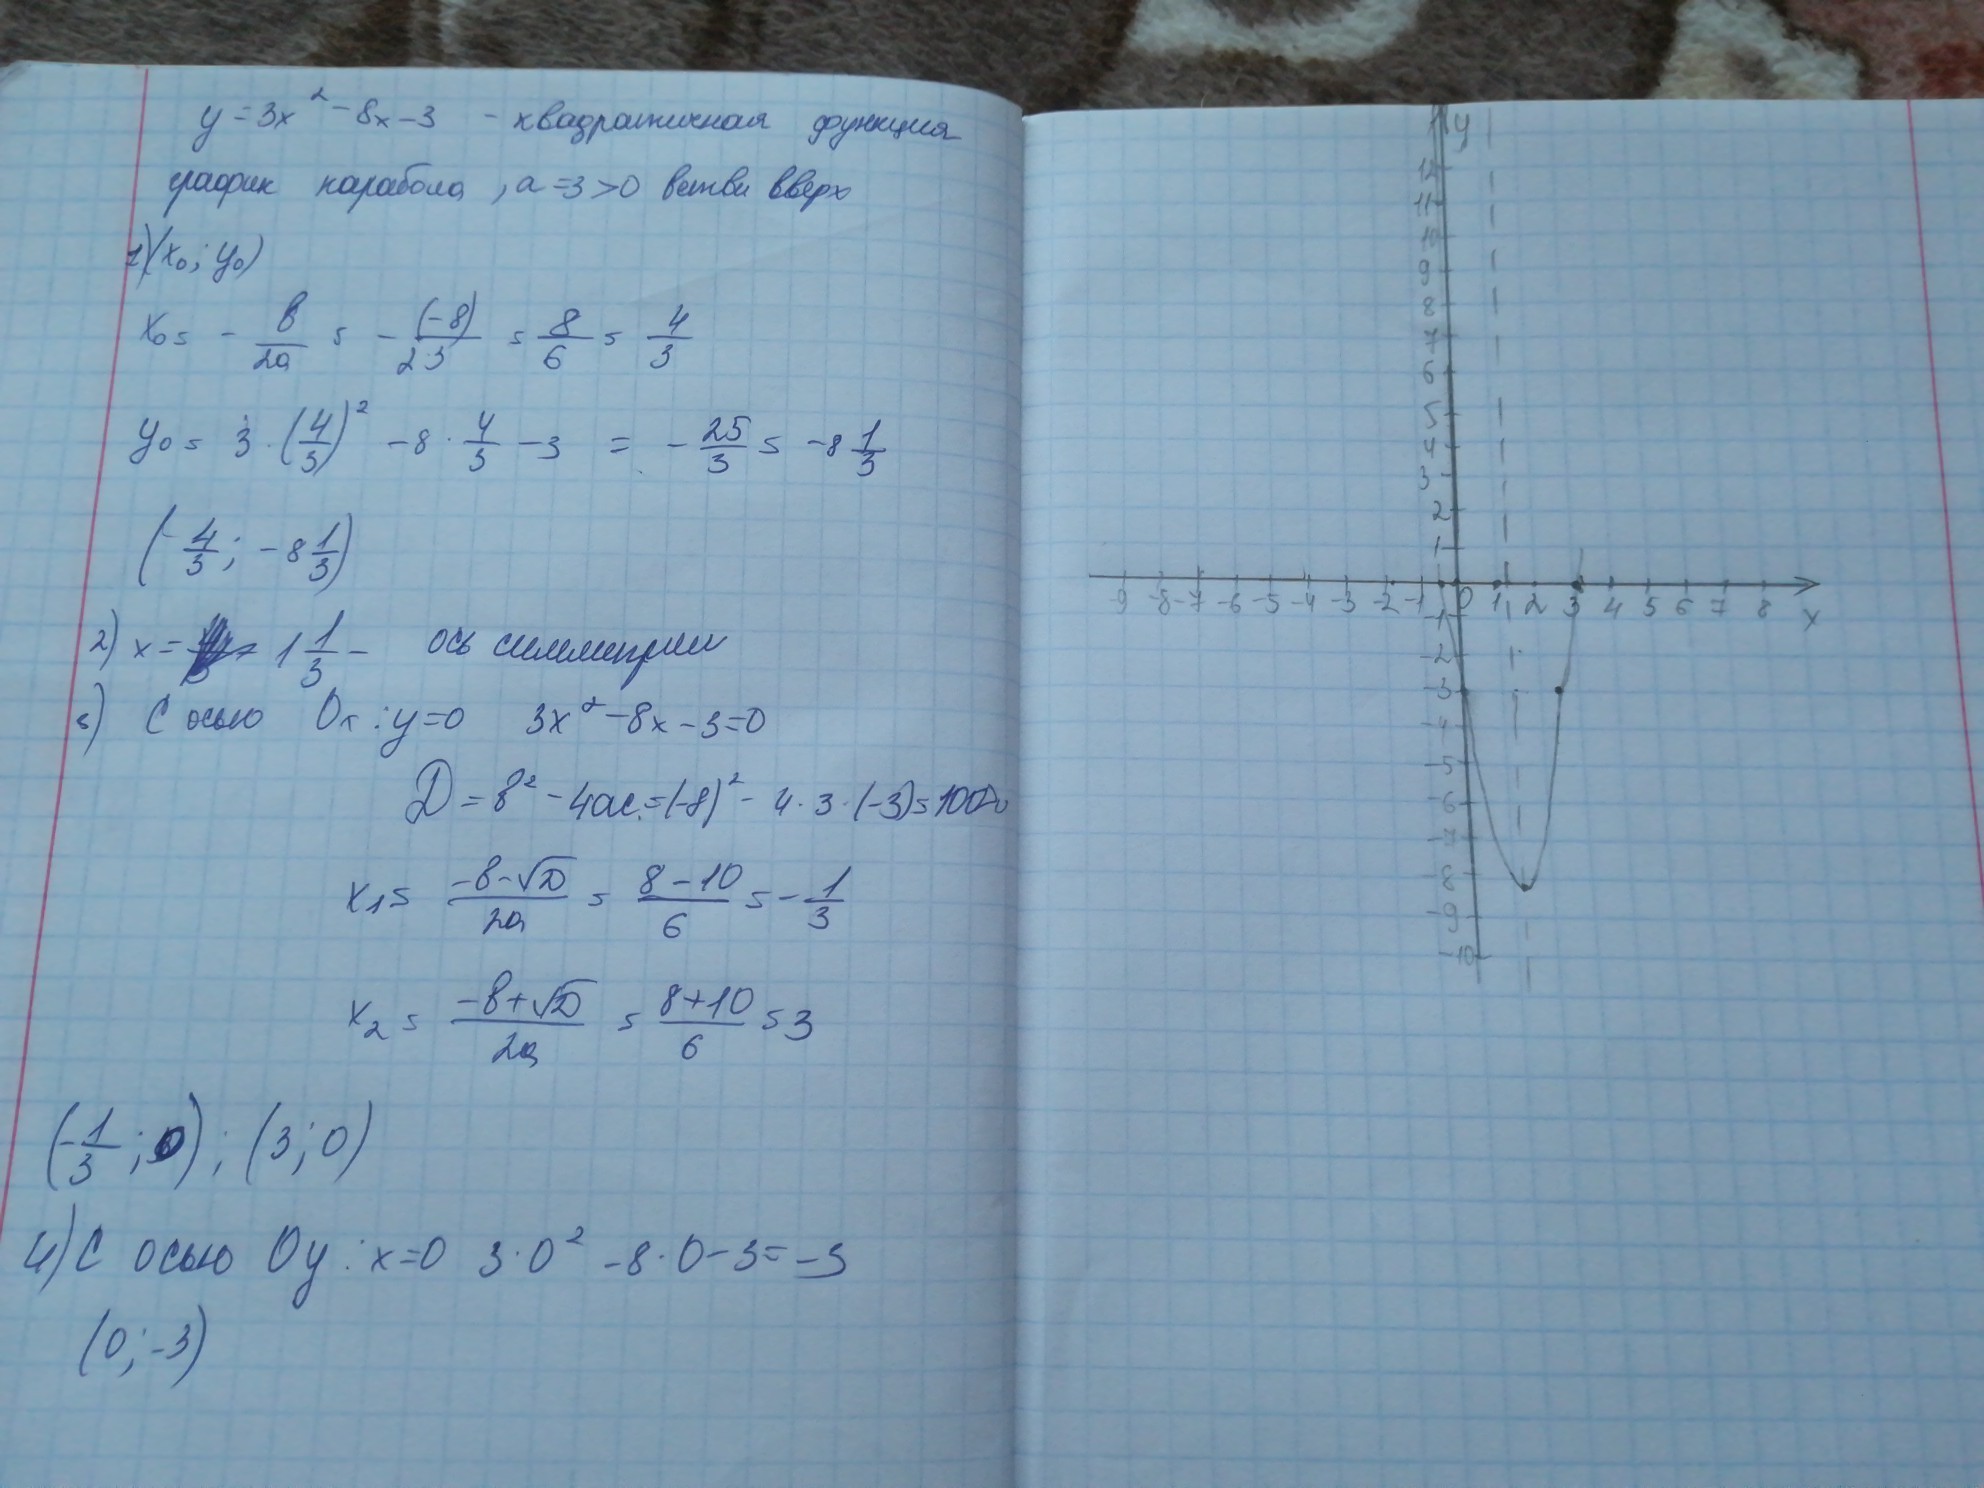 y = 3x² - 8x - 3 - квадратичная функция
график парабола, a = 3 > 0 ветви вверх
1) (x₀; y₀)
x₀ = - b/2a = - (-8)/2·3 = 8/6 = 4/3
y₀ = 3·(4/3)² - 8·4/3 - 3 = - 25/3 = -8 1/3
(-4/3; -8 1/3)
2) x = 1 1/3 - ось симметрии
3) С осью Ox: y=0 3x² - 8x - 3 = 0
D = b² - 4ac = (-8)² - 4·3·(-3) = 100>0
x₁ = -b-√D/2a = 8-10/6 = -1/3
x₂ = -b+√D/2a = 8+10/6 = 3
(-1/3; 0); (3; 0)
4) С осью Oy: x=0 3·0² - 8·0 - 3 = -3
(0; -3)
y
12
11
10
9
8
7
6
5
4
3
2
1
-9 -8 -7 -6 -5 -4 -3 -2 -1 0 1 2 3 4 5 6 7 8 x
-1
-2
-3
-4
-5
-6
-7
-8
-9
-10